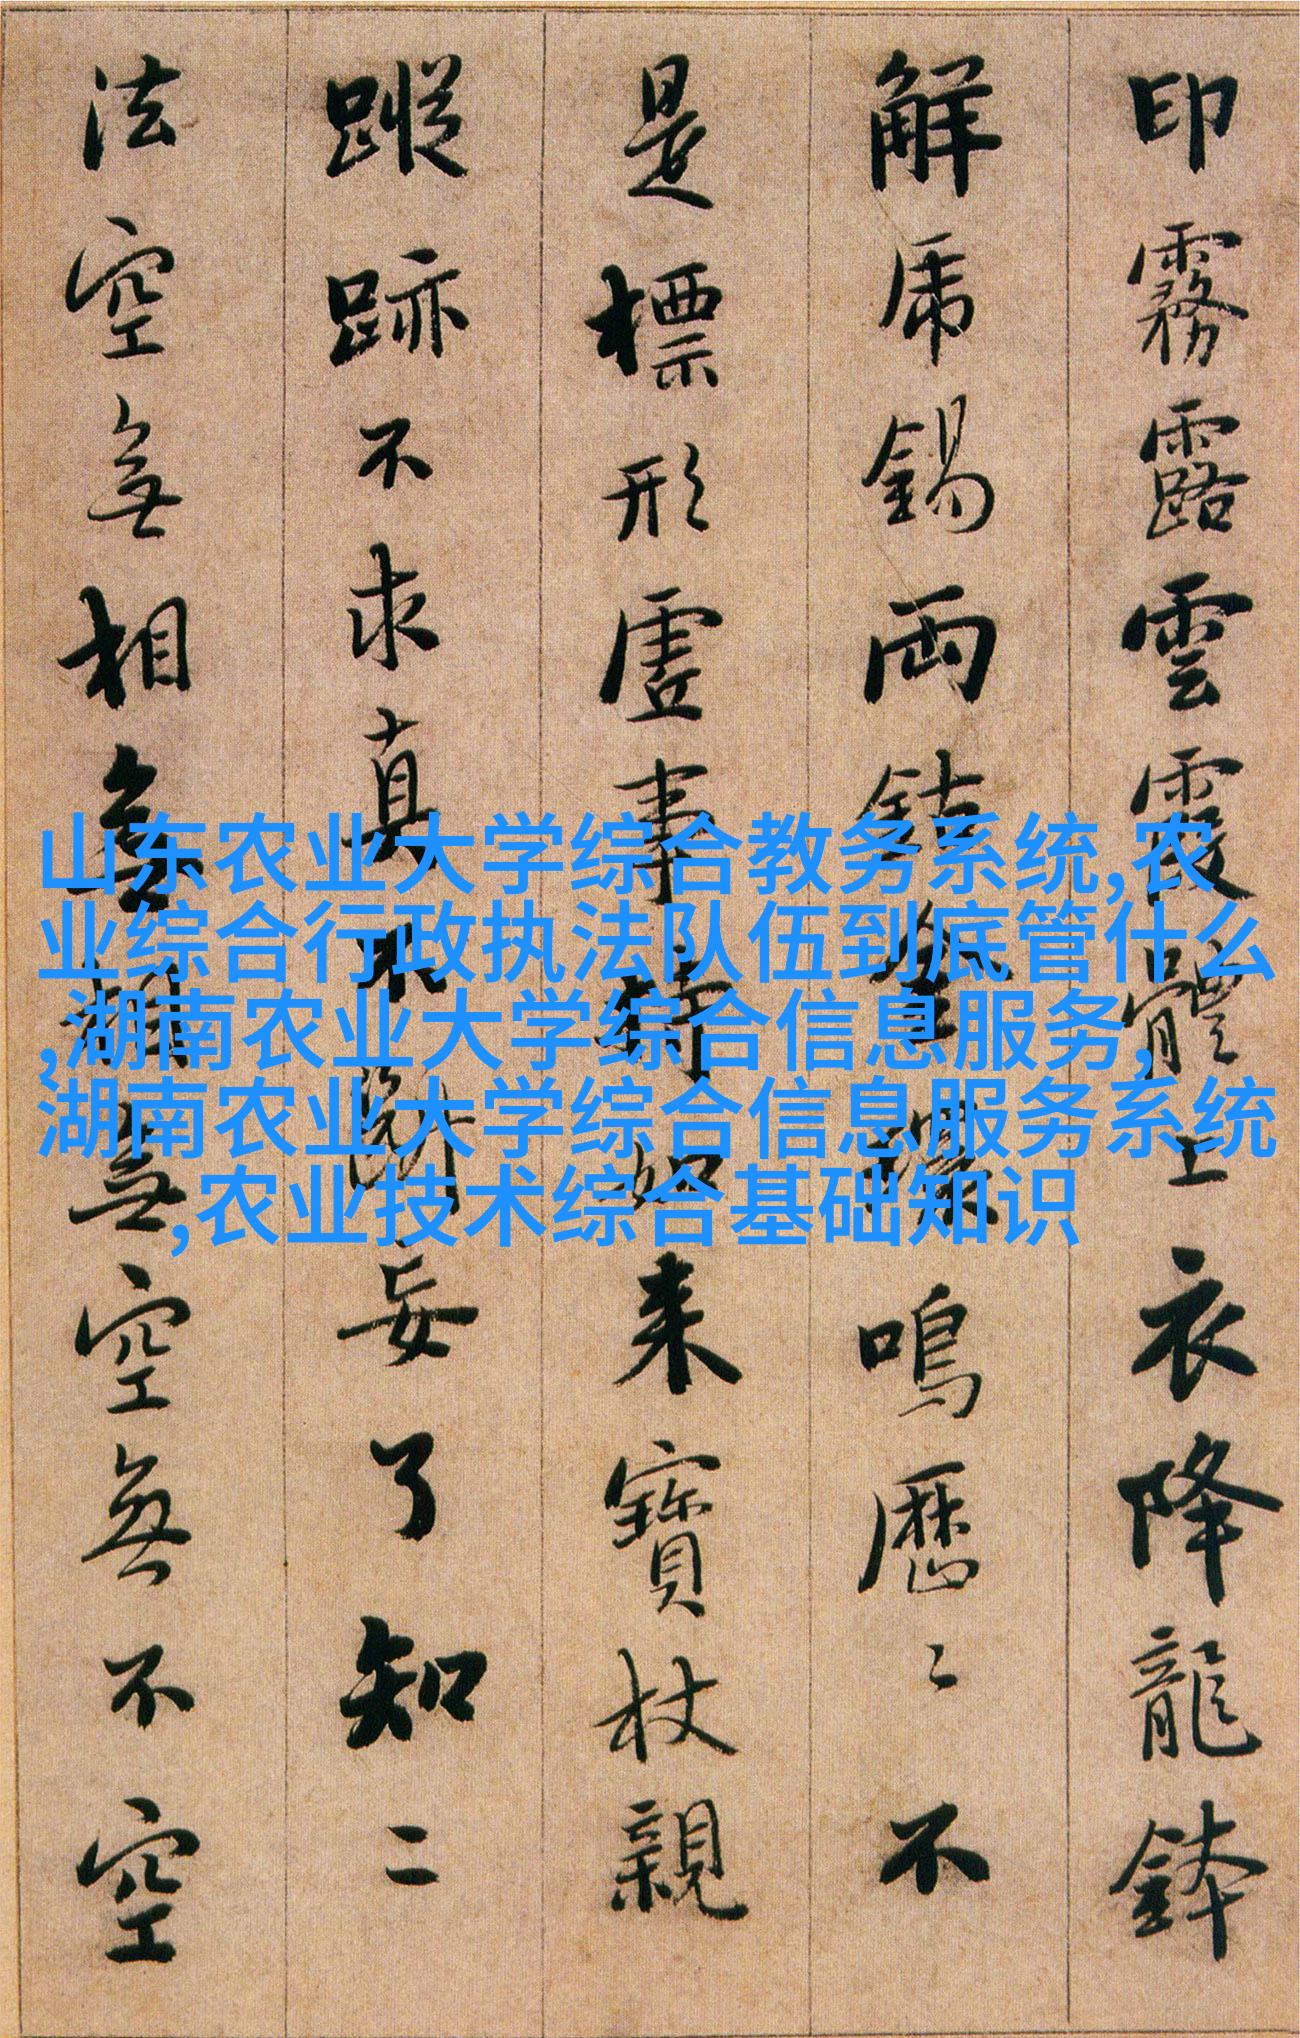 印霧露雲霞體上衣降龍鉢
解虎錫兩鈷金環鳴歷々不
是標形虛事持如來寶杖親
蹤跡不求真不斷妄了知二
法空無相無相無空無不空
山东农业大学综合教务系统,农
业综合行政执法队伍到底管什么
,湖南农业大学综合信息服务,
湖南农业大学综合信息服务系统
,农业技术综合基础知识